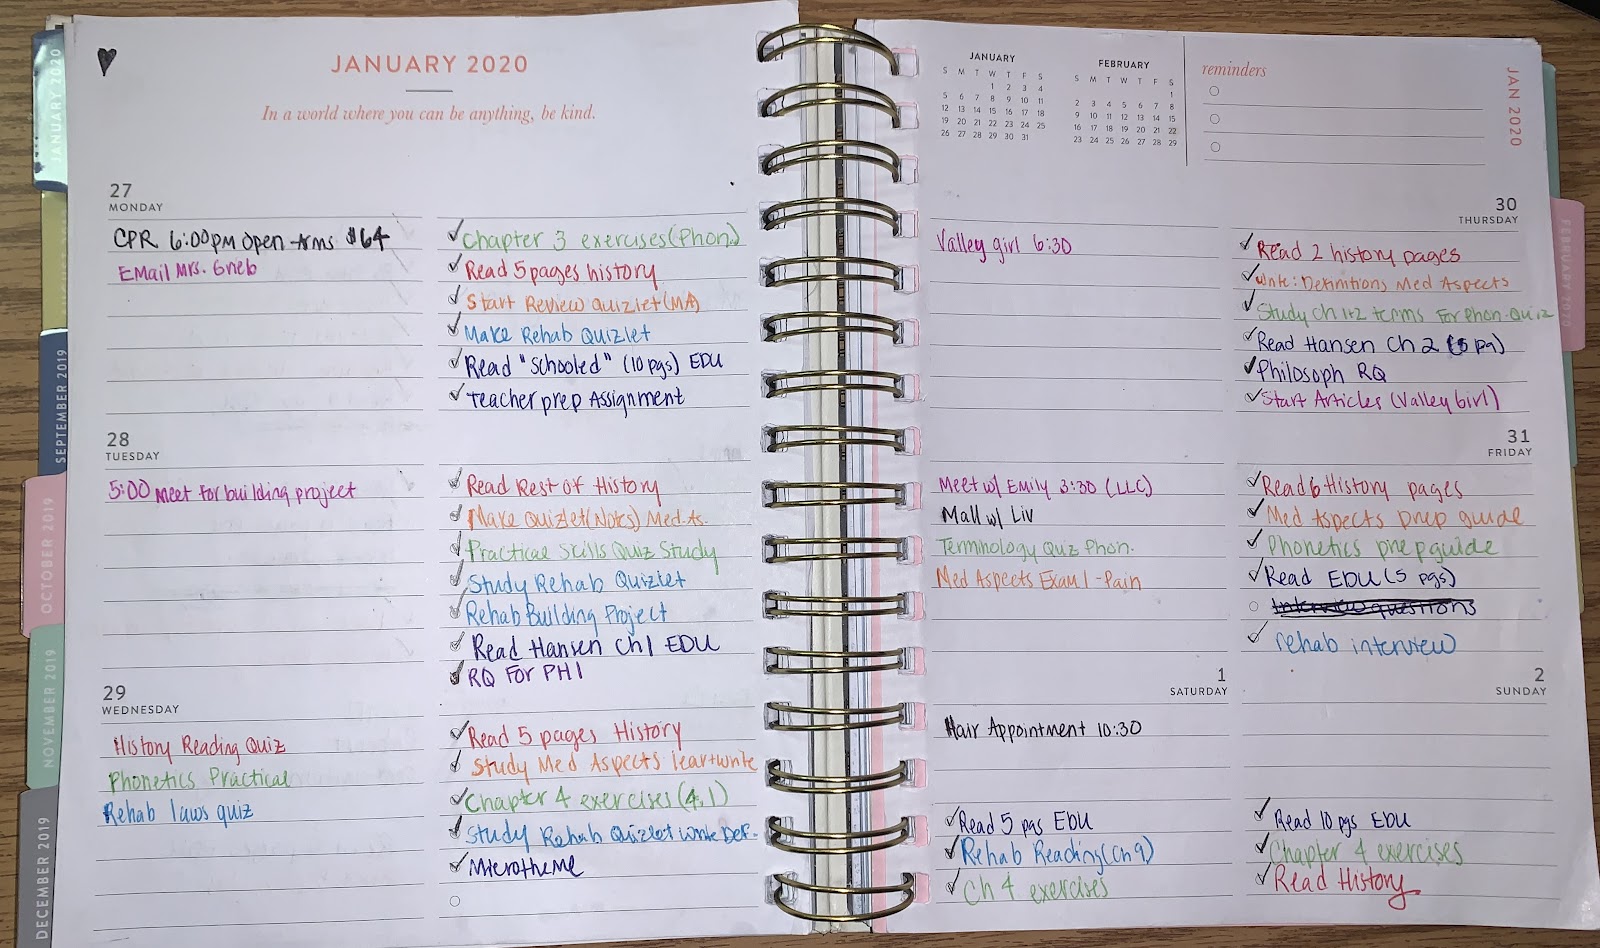 JANUARY 2020
In a world where you can be anything, be kind.
27
MONDAY
CPR 6:00pm Open Arms $64
Email Mrs. Grieb
Chapter 3 exercises (Phon.)
Read 5 pages history
Start Review Quizlet (MA)
Make Rehab Quizlet
Read "Schooled" (10 pgs) EDU
Teacher prep Assignment
28
TUESDAY
5:00 Meet for building project
Read Rest of History
Make Quizlet (Notes) Med. As.
Practical Skills Quiz Study
Study Rehab Quizlet
Rehab Building Project
Read Hansen Ch 1 EDU
RQ For PHI
29
WEDNESDAY
History Reading Quiz
Phonetics Practical
Rehab laws quiz
Read 5 pages History
Study Med Aspects lear+write
Chapter 4 exercises (4.1)
Study Rehab Quizlet write Def.
Microtheme
JANUARY
S M T W T F S
1 2 3 4
5 6 7 8 9 10 11
12 13 14 15 16 17 18
19 20 21 22 23 24 25
26 27 28 29 30 31
FEBRUARY
S M T W T F S
1
2 3 4 5 6 7 8
9 10 11 12 13 14 15
16 17 18 19 20 21 22
23 24 25 26 27 28 29
reminders
JAN 2020
30
THURSDAY
Valley girl 6:30
Read 2 history pages
Write: Definitions Med Aspects
Study Ch 1+2 terms For Phon. Quiz
Read Hansen Ch 2 (5 pg)
Philosoph RQ
Start Articles (Valley Girl)
31
FRIDAY
Meet w/ Emily 3:30 (LLC)
Mall w/ Liv
Terminology Quiz Phon.
Med Aspects Exam 1 - Pain
Read 6 History pages
Med Aspects prep guide
Phonetics prep guide
Read EDU (5 pgs)
Interview questions
rehab interview
1
SATURDAY
Hair Appointment 10:30
Read 5 pgs EDU
Rehab Reading (Ch 9)
Ch 4 exercises
2
SUNDAY
Read 10 pgs EDU
Chapter 4 exercises
Read History
JANUARY 2020
SEPTEMBER 2019
OCTOBER 2019
NOVEMBER 2019
DECEMBER 2019
FEBRUARY 2020